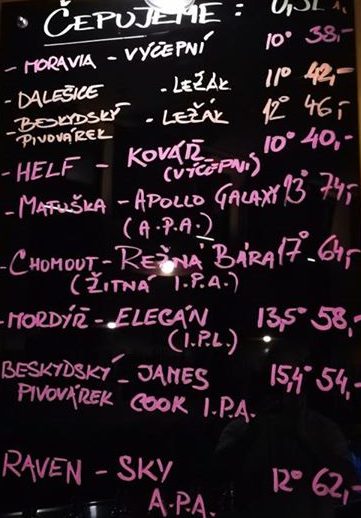 ČEPUJEME: 0,5L
- MORAVIA - VÝČEPNÍ 10° 38,-
- DALEŠICE - LEŽÁK 11° 42,-
- BESKYDSKÝ PIVOVÁREK - LEŽÁK 12° 46,-
- HELF - KOVÁŘ (VÝČEPNÍ) 10° 40,-
- MATUŠKA - APOLLO GALAXY 13° 74,-
(A.P.A.)
- CHOMOUT - REŽNÁ BÁRA 17° 64,-
(ŽITNÁ I.P.A.)
- MORDÝŘ - ELEGÁN 13,5° 58,-
(I.P.L.)
BESKYDSKÝ - JAMES 15,4° 54,-
PIVOVÁREK COOK I.P.A.
RAVEN - SKY 12° 62,-
A.P.A.